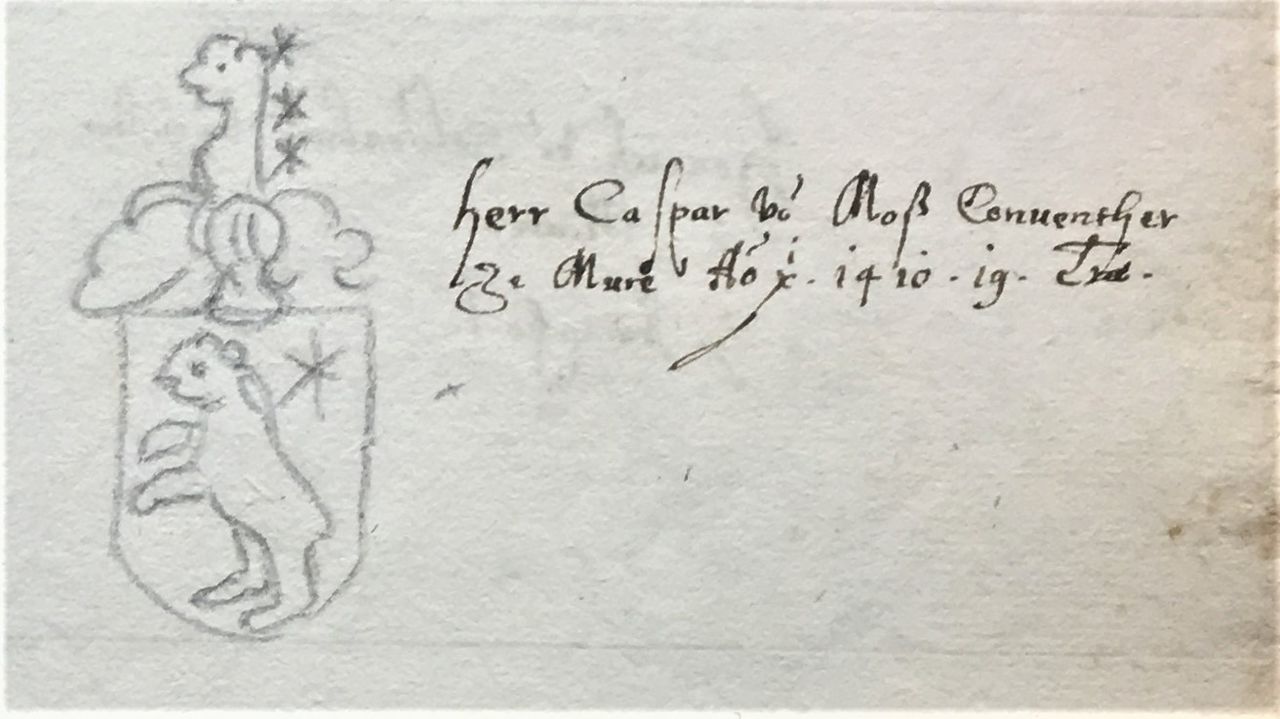 Herr Caspar vō Moß Conuenther
Ze Murē Aō x. 1410. 19.